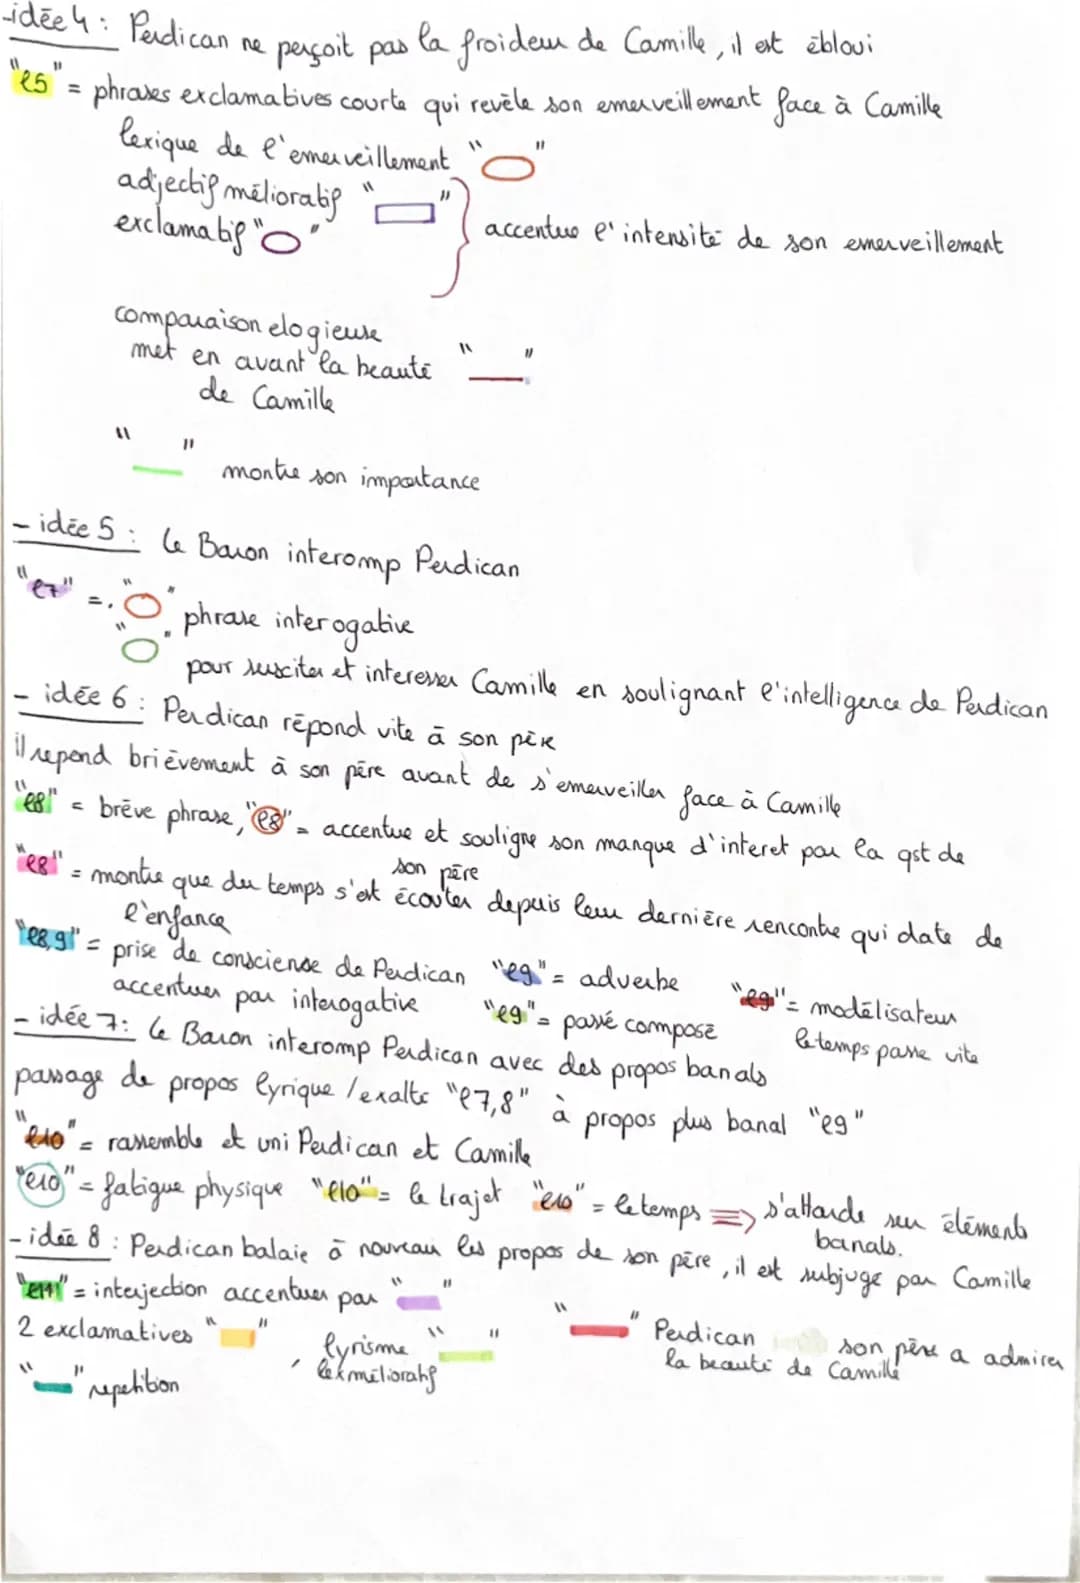 -idée 4 : Perdican ne perçoit pas la froideur de Camille, il est ébloui
"l5" = phrases exclamatives courte qui revèle son emerveillement face à Camille
lexique de l'emerveillement " "
adjectif mélioratif " "
exclamatif " "
accentue l'intensité de son emerveillement
comparaison elogieuse
met en avant la beauté " "
de Camille
" " montre son importance
- idée 5 : le Baron interomp Perdican
"l7" = " " phrase interogative
" "
pour susciter et interesser Camille en soulignant l'intelligence de Perdican
- idée 6 : Perdican répond vite à son père
il repond brièvement à son père avant de s'emerveiller face à Camille
"l8" = brève phrase, "l8" = accentue et souligne son manque d'interet par la qst de
son père
"l8" = montre que du temps s'est écouler depuis leur dernière rencontre qui date de
l'enfance
"l8,9" = prise de consciense de Perdican "l9" = adverbe "l9" = modélisateur
accentuer par interogative "l9" = passé composé le temps passe vite
- idée 7 : le Baron interomp Perdican avec des propos banals
passage de propos lyrique /exalté "l7,8" à propos plus banal "l9"
"l10" = rassemble et uni Perdican et Camille
"l10" = fatigue physique "l10" = le trajet "l10" = le temps => s'attarde sur éléments
banals.
- idée 8 : Perdican balaie à nouveau les propos de son père, il est subjugé par Camille
"l11" = interjection accentuer par " "
2 exclamatives " " , lyrisme " " " " Perdican son père a admirer
lex mélioratif la beauté de Camille
" " repetition